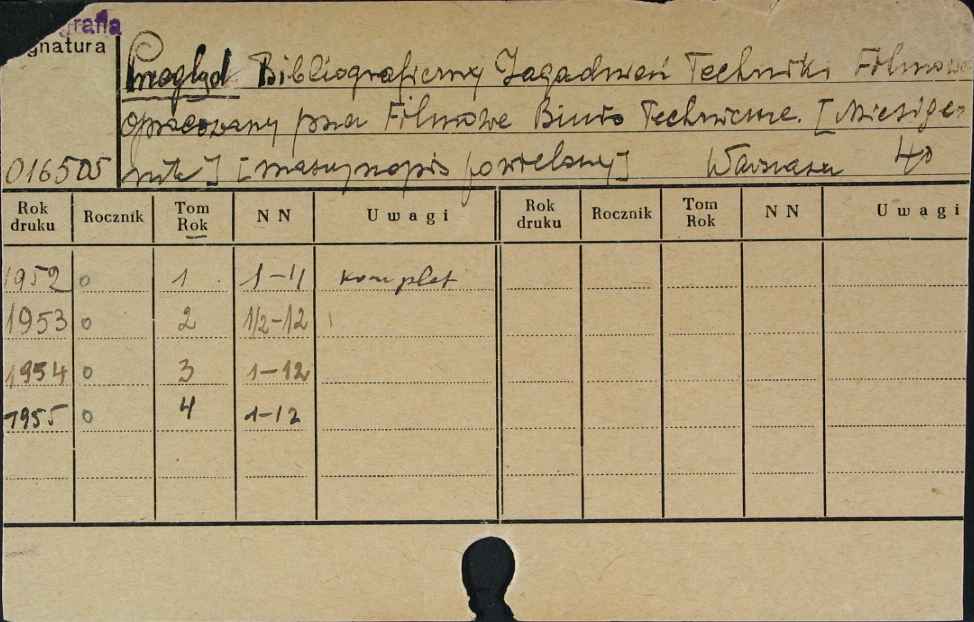 grafia
gnatura
Przegląd Bibliograficzny Zagadnień Techniki Filmowe
opracowany prze Filmowe Biuro Techniczne. [Miesięcz-
nik] [maszynopis powielany] Warszawa 4°
016505
Rok druku Rocznik Tom Rok N N Uwagi Rok druku Rocznik Tom Rok N N Uwagi
1952 0 1 1-4 komplet
1953 0 2 1/2-12
1954 0 3 1-12
1955 0 4 1-12